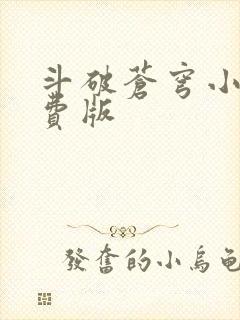 斗破蒼穹小
費版
發奮的小烏龜